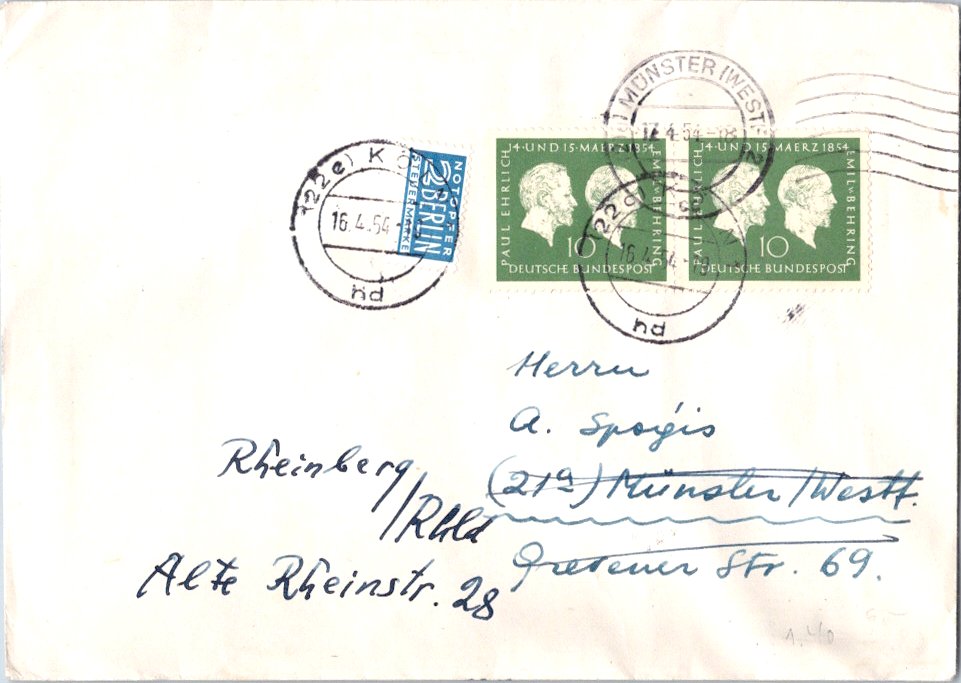 MÜNSTER (WESTF) 2
17.4.54-18
(22c) KÖLN
16.4.54-
hd
NOTOPFER
2 BERLIN
STEUERMARKE
14·UND 15·MAERZ 1854
PAUL EHRLICH
EMIL v BEHRING
10
DEUTSCHE BUNDESPOST
14·UND 15·MAERZ 1854
PAUL EHRLICH
EMIL v BEHRING
10
DEUTSCHE BUNDESPOST
(22c) KÖLN
16.4.54-19
hd
Herrn
A. Spogis
(21a) Münster/Westf.
Grevener Str. 69.
Rheinberg
/Rhld
Alte Rheinstr. 28
1,40